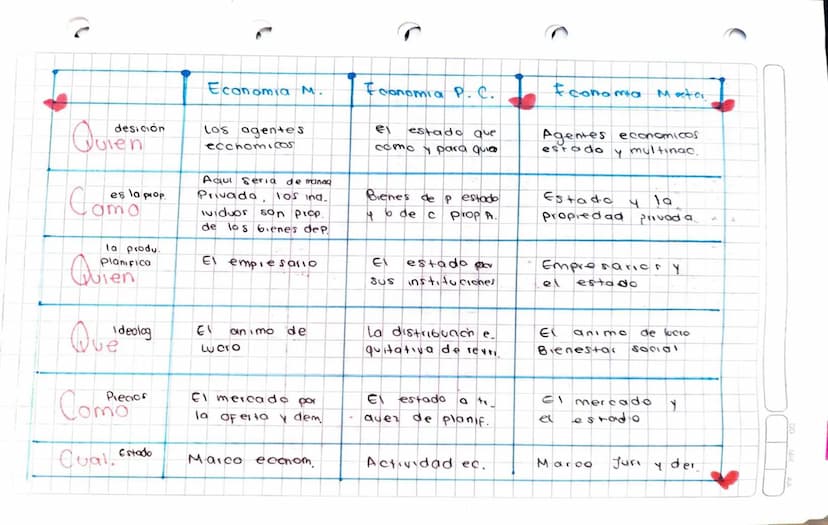 Economia M.
Economia P. C.
Economia Mixta
Quien desición
Los agentes
economicos
el estado que
como y para quie
Agentes economicos
estado y multinac.
Como es la prop.
Aqui seria de mane
Privada, los ind.
ividuos son prop.
de los bienes dep.
Bienes de p estado
y b de c prop A.
Estado y la
propiedad privada.
Quien la produ.
planifica
El empresario
El estado por
sus instituciones
Empresarios y
el estado
Que Ideolog
El animo de
lucro
La distribución e.
quitativa de
El animo de lucro
Bienestar social
Como Precios
El mercado por
la oferta y dem.
El estado a tr_
avez de planif.
El mercado y
el estado
Cual. Estado
Marco econom.
Actividad ec.
Marco Juri y der.